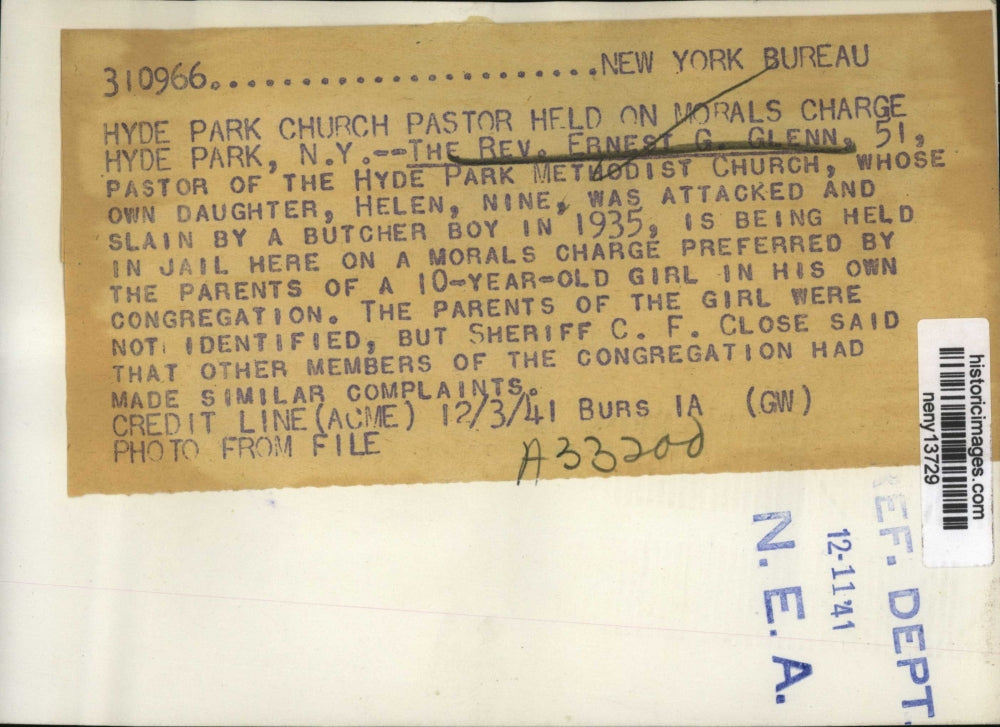 310966..........................NEW YORK BUREAU
HYDE PARK CHURCH PASTOR HELD ON MORALS CHARGE
HYDE PARK, N.Y.--THE REV. ERNEST G. GLENN, 51,
PASTOR OF THE HYDE PARK METHODIST CHURCH, WHOSE
OWN DAUGHTER, HELEN, NINE, WAS ATTACKED AND
SLAIN BY A BUTCHER BOY IN 1935, IS BEING HELD
IN JAIL HERE ON A MORALS CHARGE PREFERRED BY
THE PARENTS OF A 10-YEAR-OLD GIRL IN HIS OWN
CONGREGATION. THE PARENTS OF THE GIRL WERE
NOT IDENTIFIED, BUT SHERIFF C. F. CLOSE SAID
THAT OTHER MEMBERS OF THE CONGREGATION HAD
MADE SIMILAR COMPLAINTS.
CREDIT LINE (ACME) 12/3/41 BURS IA (GW)
PHOTO FROM FILE
A33200
historicimages.com
neny13729
REF. DEPT.
12-11-41
N. E. A.